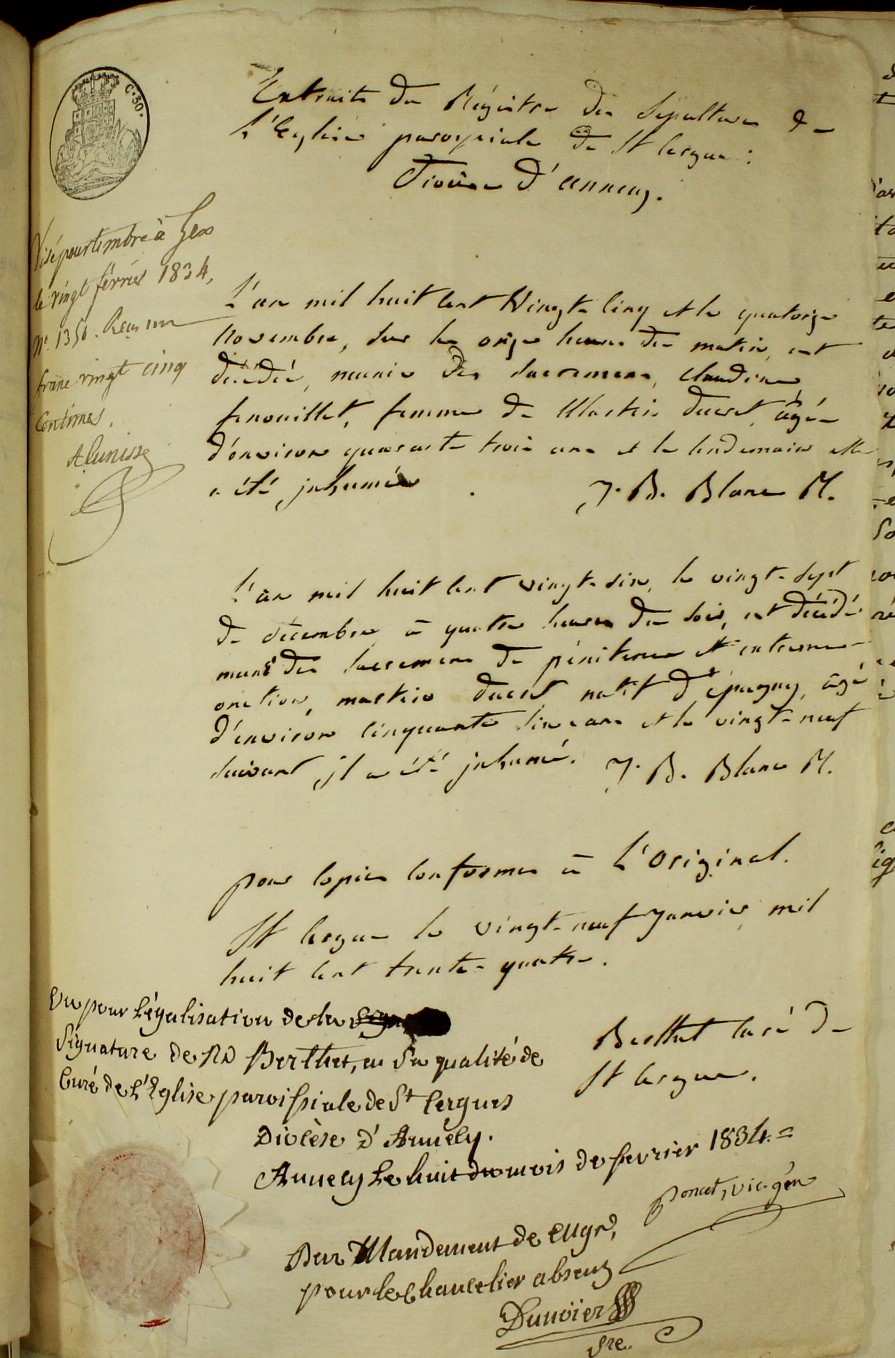 C. 30.
Extrait du Régistre des Sépultures de
L'Eglise paroissiale de St Cergue :
Diocèse d'Annecy.
Visé pour timbre à Gex
le vingt février 1834,
N°. 1350. Reçu un
franc vingt cinq
Centimes.
L'an mil huit cent Vingt-Cinq et le quatorze
Novembre, sur les onze heures du matin, est
décédée, munie des Sacremens, Claudine
fenouillet, femme de Martin ducret, âgée
d'environ quarante trois ans et le lendemain elle
a été jnhumée. J. B. Blanc M.
L'an mil huit cent vingt-six, le vingt-sept
de décembre à quatre heures du soir, est décédé
muni des Sacremens de pénitence et extreme-
onction, martin ducret natif d'épagny, âgé
d'environ Cinquante six ans et le vingt-neuf
suivant jl a été jnhumé. J. B. Blanc M.
pour Copie Conforme à L'Original.
St Cergue le vingt-neuf Janvier mil
huit cent trente-quatre.
Berthet Curé de
St Cergue.
Vu pour Légalisation de la
Signature de Rd Berthet, en Sa qualité de
Curé de L'Eglise paroissiale de St Cergues
Diocèse d'Annecy.
Annecy Le huit du mois de fevrier 1834.=
poncet, vic. gén
Par Mandement de Mgr,
pour Le Chancelier absent
Dunoier
Sre.